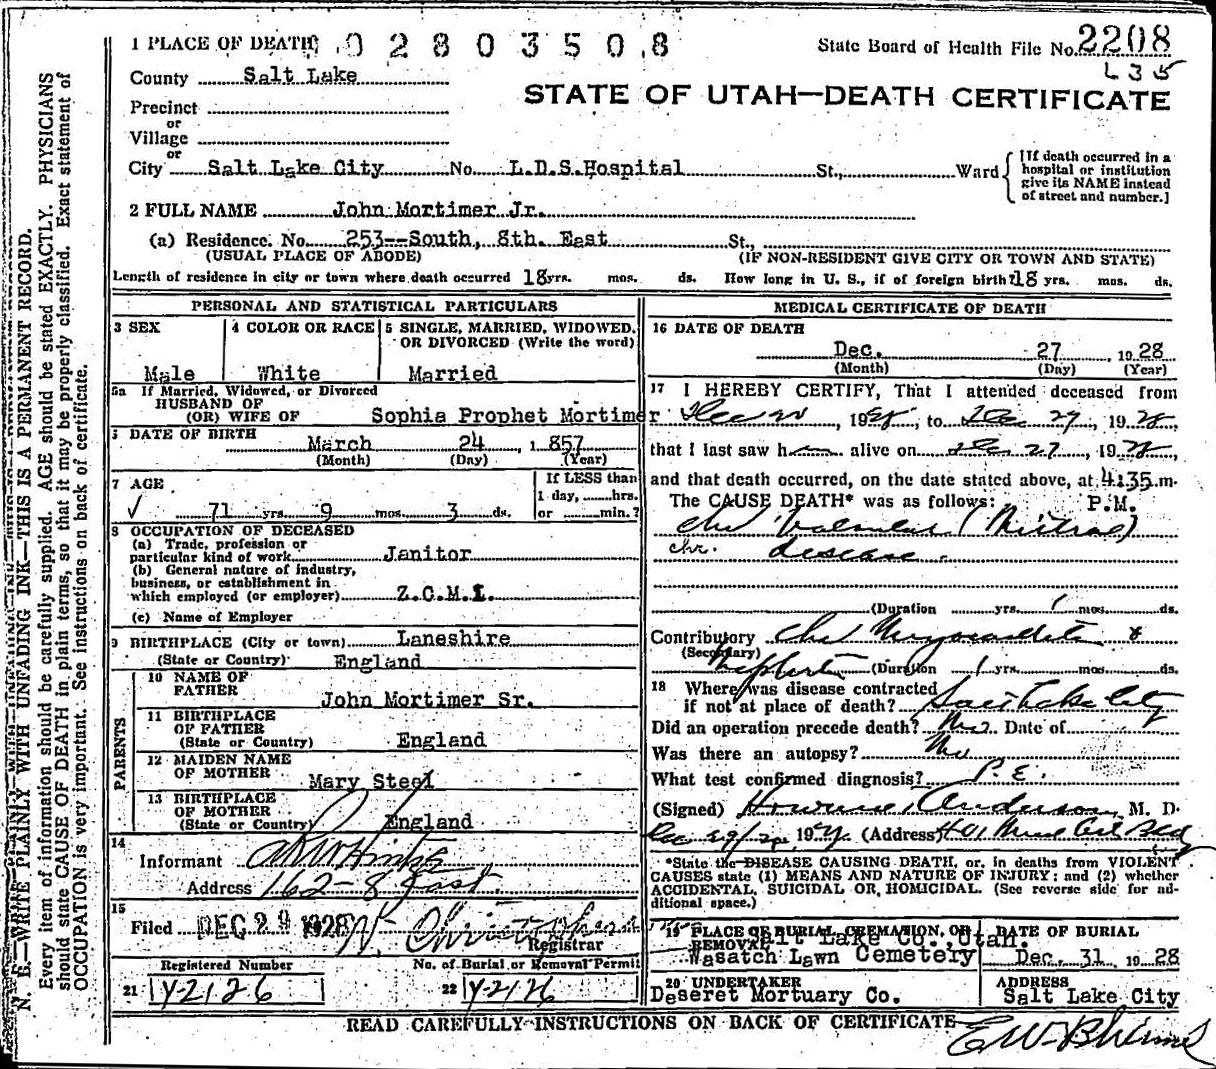 1 PLACE OF DEATH 0 2 8 0 3 5 0 8
State Board of Health File No. 2208
County Salt Lake
L 35
STATE OF UTAH—DEATH CERTIFICATE
Precinct
or
Village
or
City Salt Lake City No. L.D.S.Hospital St., Ward
[If death occurred in a
hospital or institution
give its NAME instead
of street and number.]
2 FULL NAME John Mortimer Jr.
(a) Residence. No. 253--South, 8th. East St.,
(USUAL PLACE OF ABODE) (IF NON-RESIDENT GIVE CITY OR TOWN AND STATE)
Length of residence in city or town where death occurred 18 yrs. mos. ds. How long in U. S., if of foreign birth? 18 yrs. mos. ds.
PERSONAL AND STATISTICAL PARTICULARS
3 SEX 4 COLOR OR RACE 5 SINGLE, MARRIED, WIDOWED,
OR DIVORCED (Write the word)
Male White Married
5a If Married, Widowed, or Divorced
HUSBAND OF
(OR) WIFE OF Sophia Prophet Mortimer
DATE OF BIRTH
March 24 1857
(Month) (Day) (Year)
7 AGE If LESS than
1 day, hrs.
71 yrs. 9 mos. 3 ds. or min.?
8 OCCUPATION OF DECEASED
(a) Trade, profession or
particular kind of work Janitor
(b) General nature of industry,
business, or establishment in
which employed (or employer) Z.C.M.I.
(c) Name of Employer
9 BIRTHPLACE (City or town) Laneshire
(State or Country) England
PARENTS
10 NAME OF
FATHER John Mortimer Sr.
11 BIRTHPLACE
OF FATHER
(State or Country) England
12 MAIDEN NAME
OF MOTHER Mary Steel
13 BIRTHPLACE
OF MOTHER
(State or Country) England
14
Informant
Address 162-8 East.
15
Filed DEC 29 1928
Registrar
Registered Number No. of Burial or Removal Permit
21 Y2126 22 Y2126
MEDICAL CERTIFICATE OF DEATH
16 DATE OF DEATH
Dec. 27, 1928
(Month) (Day) (Year)
17 I HEREBY CERTIFY, That I attended deceased from
Dec 20, 1928, to Dec 27, 1928,
that I last saw him alive on Dec 27, 1928,
and that death occurred, on the date stated above, at 4:35 m.
The CAUSE DEATH* was as follows: P.M.
Valvular (Mitral)
chr. disease.
(Duration yrs. 1 mos. ds.
Contributory Myocarditis &
(Secondary)
(Duration 1 yrs. mos. ds.
18 Where was disease contracted
if not at place of death? Salt Lake City
Did an operation precede death? No. Date of
Was there an autopsy? No
What test confirmed diagnosis? P.E.
(Signed) Anderson, M. D.
(Address)
*State the DISEASE CAUSING DEATH, or, in deaths from VIOLENT
CAUSES state (1) MEANS AND NATURE OF INJURY; and (2) whether
ACCIDENTAL, SUICIDAL OR HOMICIDAL. (See reverse side for ad-
ditional space.)
19 PLACE OF BURIAL, CREMATION, OR DATE OF BURIAL
REMOVAL Salt Lake Co., Utah.
Wasatch Lawn Cemetery Dec. 31, 1928
20 UNDERTAKER ADDRESS
Deseret Mortuary Co. Salt Lake City
READ CAREFULLY INSTRUCTIONS ON BACK OF CERTIFICATE
N. B.—WRITE PLAINLY WITH UNFADING INK—THIS IS A PERMANENT RECORD.
Every item of information should be carefully supplied. AGE should be stated EXACTLY. PHYSICIANS
should state CAUSE OF DEATH in plain terms, so that it may be properly classified. Exact statement of
OCCUPATION is very important. See instructions on back of certificate.